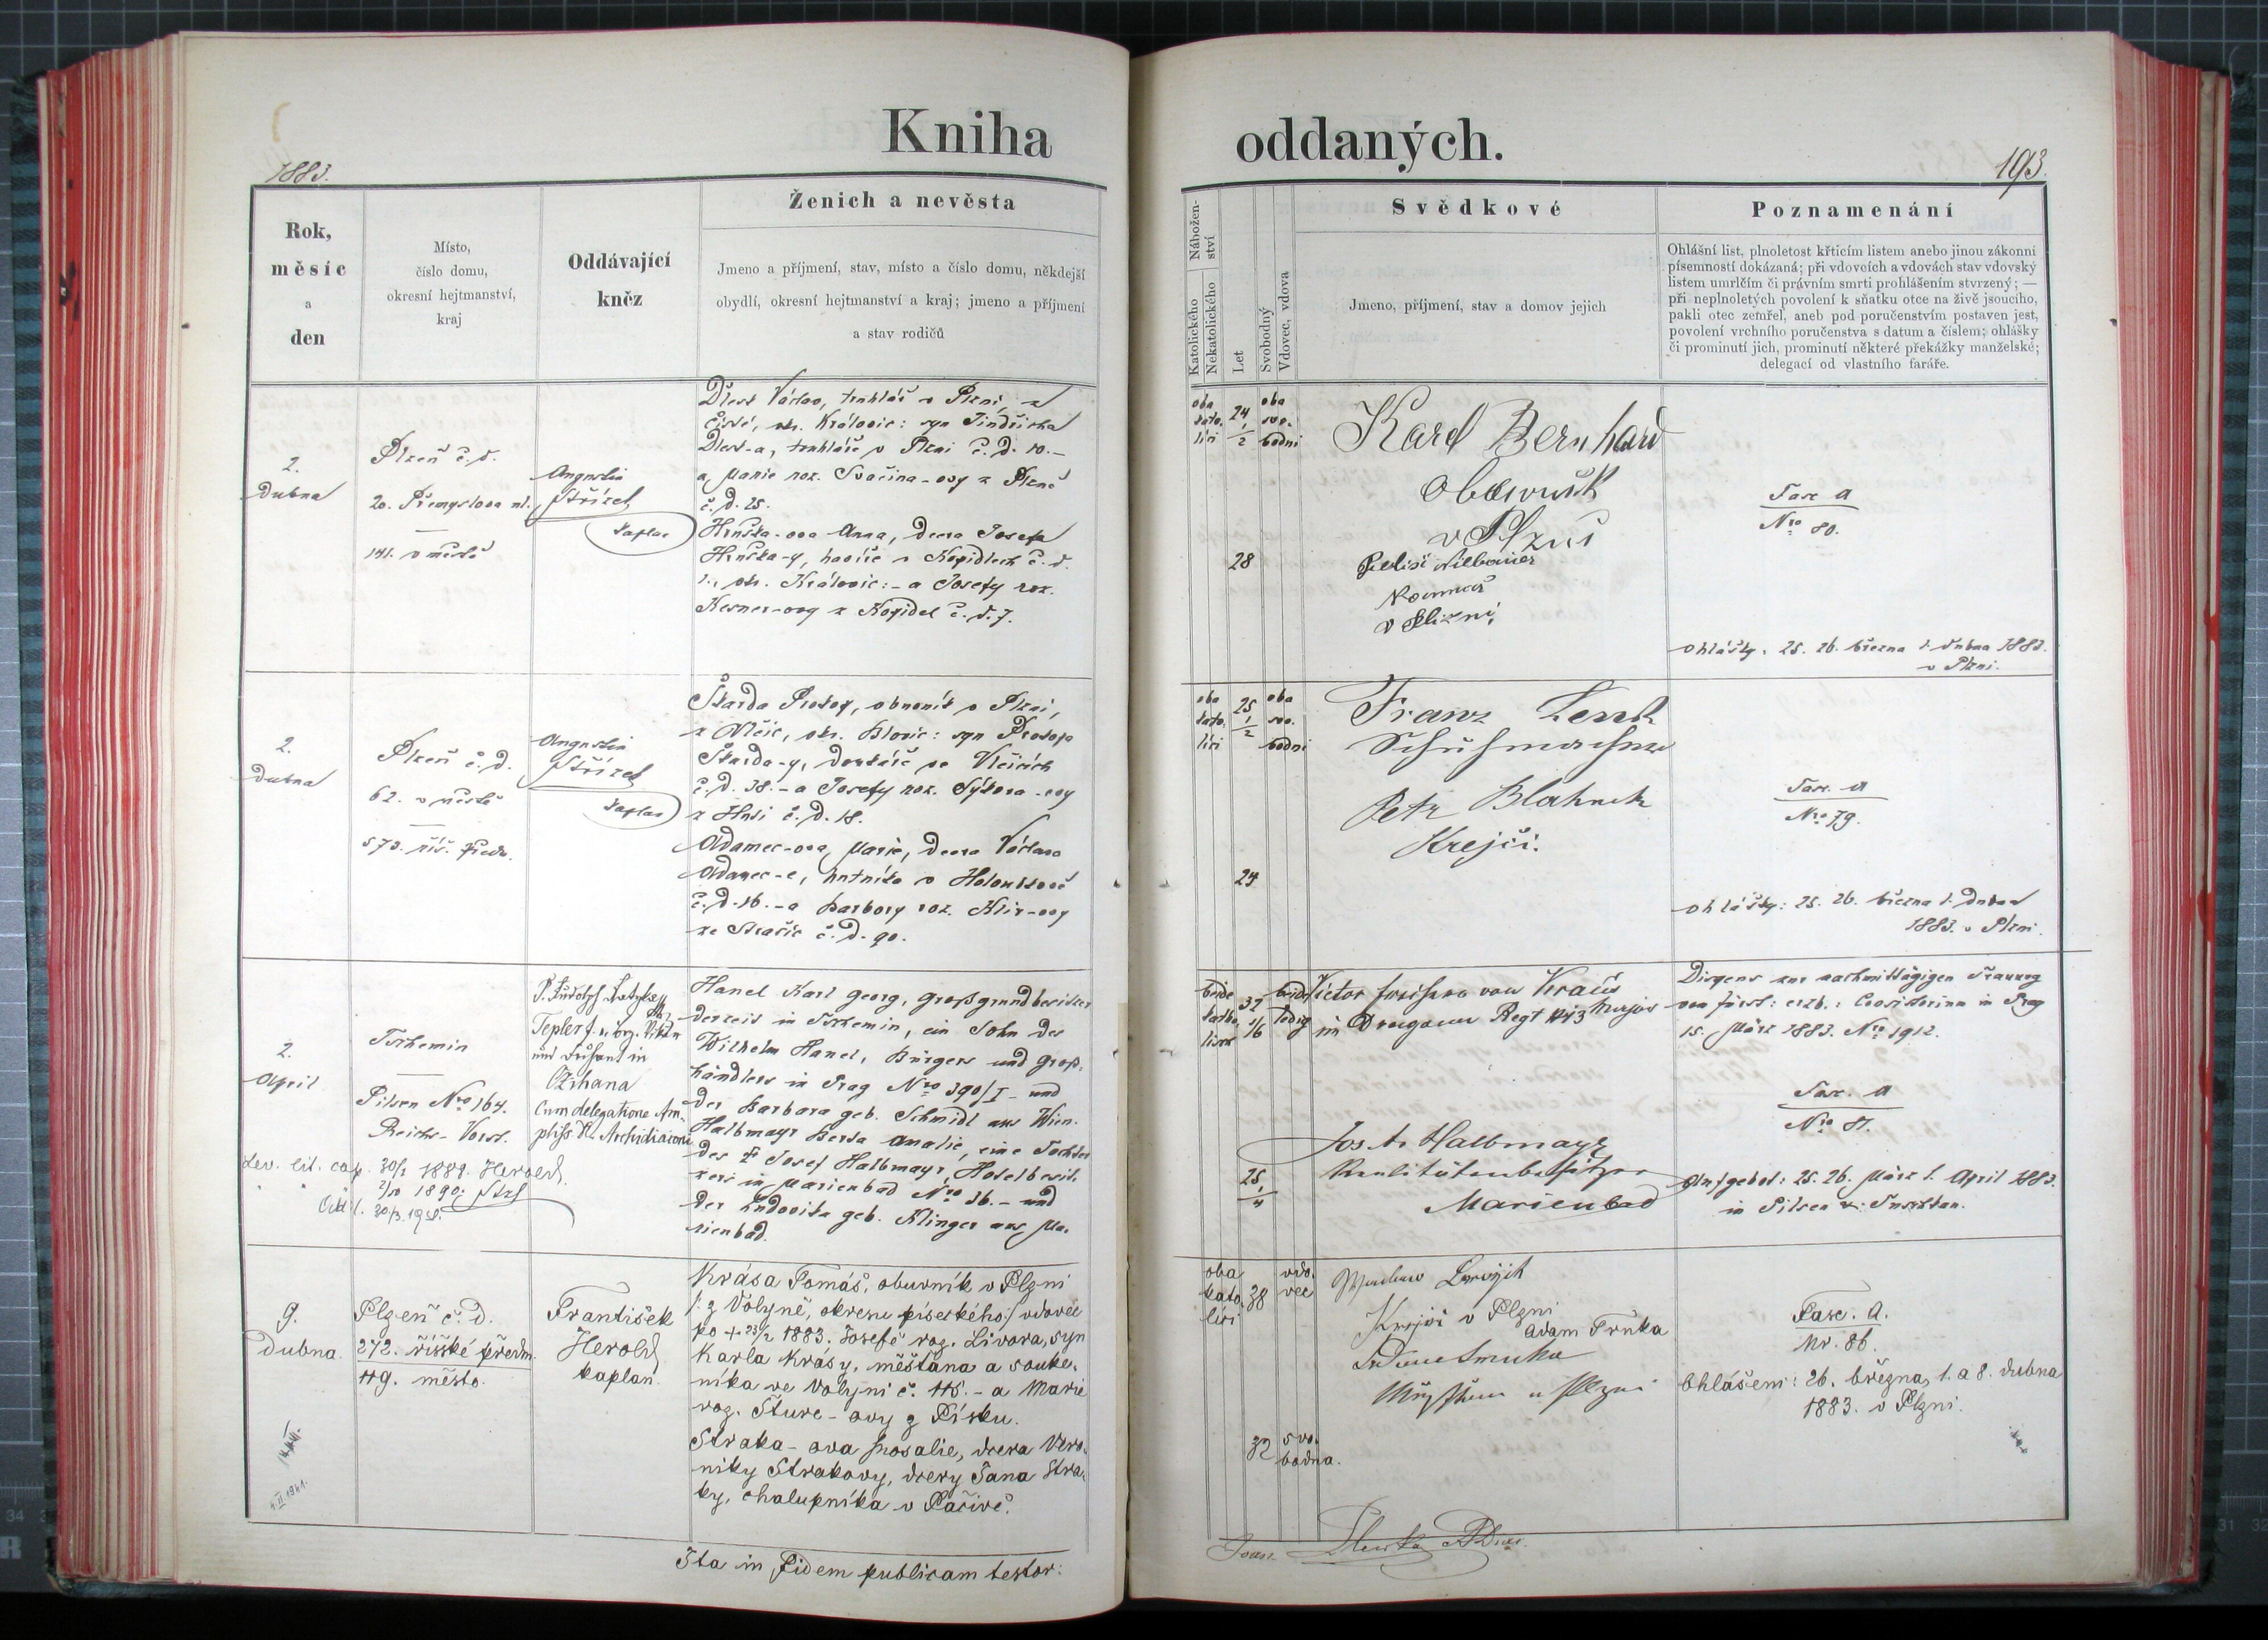 Kniha
oddaných.
1883.
193.
Rok,
měsíc
a
den
Místo,
číslo domu,
okresní hejtmanství,
kraj
Oddávající
kněz
Ženich a nevěsta
Jmeno a příjmení, stav, místo a číslo domu, někdejší
obydlí, okresní hejtmanství a kraj; jmeno a příjmení
a stav rodičů
Nábožen-
ství
Katolického
Nekatolického
Let
Svobodný
Vdovec, vdova
Svědkové
Jmeno, příjmení, stav a domov jejich
Poznamenání
Ohlášní list, plnoletost křticím listem anebo jinou zákonní
písemností dokázaná; při vdovcích a vdovách stav vdovský
listem umrlčím či právním smrti prohlášením stvrzený; —
při neplnoletých povolení k sňatku otce na živě jsoucího,
pakli otec zemřel, aneb pod poručenstvím postaven jest,
povolení vrchního poručenstva s datum a číslem; ohlášky
či prominutí jich, prominutí některé překážky manželské;
delegací od vlastního faráře.
2.
Dubna
Plzeň č. d.
20. Přemyslova ul.
141. v městě
Augustin
Střízek
kaplan
Václav, truhlář v Plzni, z
Čisté, okr. Královic: syn Jindřicha
truhláře v Plzni č. d. 10.-
a Marie roz. Svačina-ovy z Plzně
č. d. 25.
Hruška-ova Anna, dcera Josefa
Hruška-y, havíře v Kopidlech č. d.
okr. Královic:- a Josefy roz.
Kesner-ovy z Kopidel č. d. 7.
oba
kato.
líci
24
1/2
28
oba
svo.
bodni
Karl Bernhard
Obuvník
v Plzni
v Plzni
Fasc. A
Nro 80.
Ohlášky: 25. 26. března 1. dubna 1883.
v Plzni.
2.
Dubna
Plzeň č. d.
62. v městě
573. říš. předm.
Augustin
Střízek
kaplan
Škarda Prokop, obuvník v Plzni,
z Vlčic, okr. Blovic: syn Prokopa
Škarda-y, domkáře ve Vlčicích
č. d. 38.- a Josefy roz. Sýkora-ovy
č. d. 18.
Adamec-ova Marie, dcera Václava
Adamec-e, hutníka v Holoubkově
č. d. 16.- a Barbory roz. Klir-ovy
ze Strašic č. d. 90.
oba
kato.
líci
25
1/2
24
oba
svo.
bodni
Franz
Schuhmacher
Petr Blahnik
Krejčí.
Fasc. A
Nro 79.
Ohlášky: 25. 26. března 1. Dubna
1883. v Plzni.
2.
April
Tschemin
Pilsen Nro 164.
Reichs-Vorst.
P. Rudolf
Tepler
und Dechant in
Cum delegatione Am.
pliss. D. Archidiaconi
Hanel Karl Georg, Großgrundbesitzer
derzeit in Tschemin, ein Sohn des
Wilhelm Hanel, Bürgers und Groß.
händlers in Prag Nro 390/I - und
der Barbara geb. Schmidl aus Wien.
Halbmayr Berta Amalie, eine Tochter
des † Josef Halbmayr, Hotelbesit.
zers in Marienbad Nro 36.- und
der Ludovika geb. Klinger aus Ma.
rienbad.
30/1 1889. Herold
1890.
beide
katho.
lisch
37
1/6
25
1/4
beide
ledig
Victor Freiherr von Kraus
im Dragoner Regt No 3 Major
Jos. A. Halbmayr
Realitätenbesitzer
Marienbad
Dispens zur nachmittägigen Trauung
vom fürst: erzb.: Consistorium in Prag
15. März 1883. Nro 1912.
Fasc. A
Nro 81.
Aufgebot: 25. 26. März 1. April 1883.
in Pilsen
9.
Dubna.
Plzeň č. d.
272. říšské předm.
119. město.
František
Herold
kaplan.
Krása Tomáš, obuvník v Plzni
/: z Volyně, okresu píseckého:/ vdovec
po + 23/2 1883. Josefě roz. Livora, syn
Karla Krásy, měšťana a souke.
níka ve Volyni č. 115.- a Marie
roz. Šturc-ovy z Písku.
Straka-ova Rosalie, dcera Vero.
niky Strakovy, dcery Jana Stra.
ky, chalupníka v Pačivě.
oba
kato.
líci
38
32
vdo.
vec
svo.
bodna.
Krejčí v Plzni
Adam Trnka
v Plzni
Fasc. A.
Nr. 86.
Ohlášení: 26. března, 1. a 8. dubna
1883. v Plzni.
4.II.1941.
Ita in fidem publicam testor: